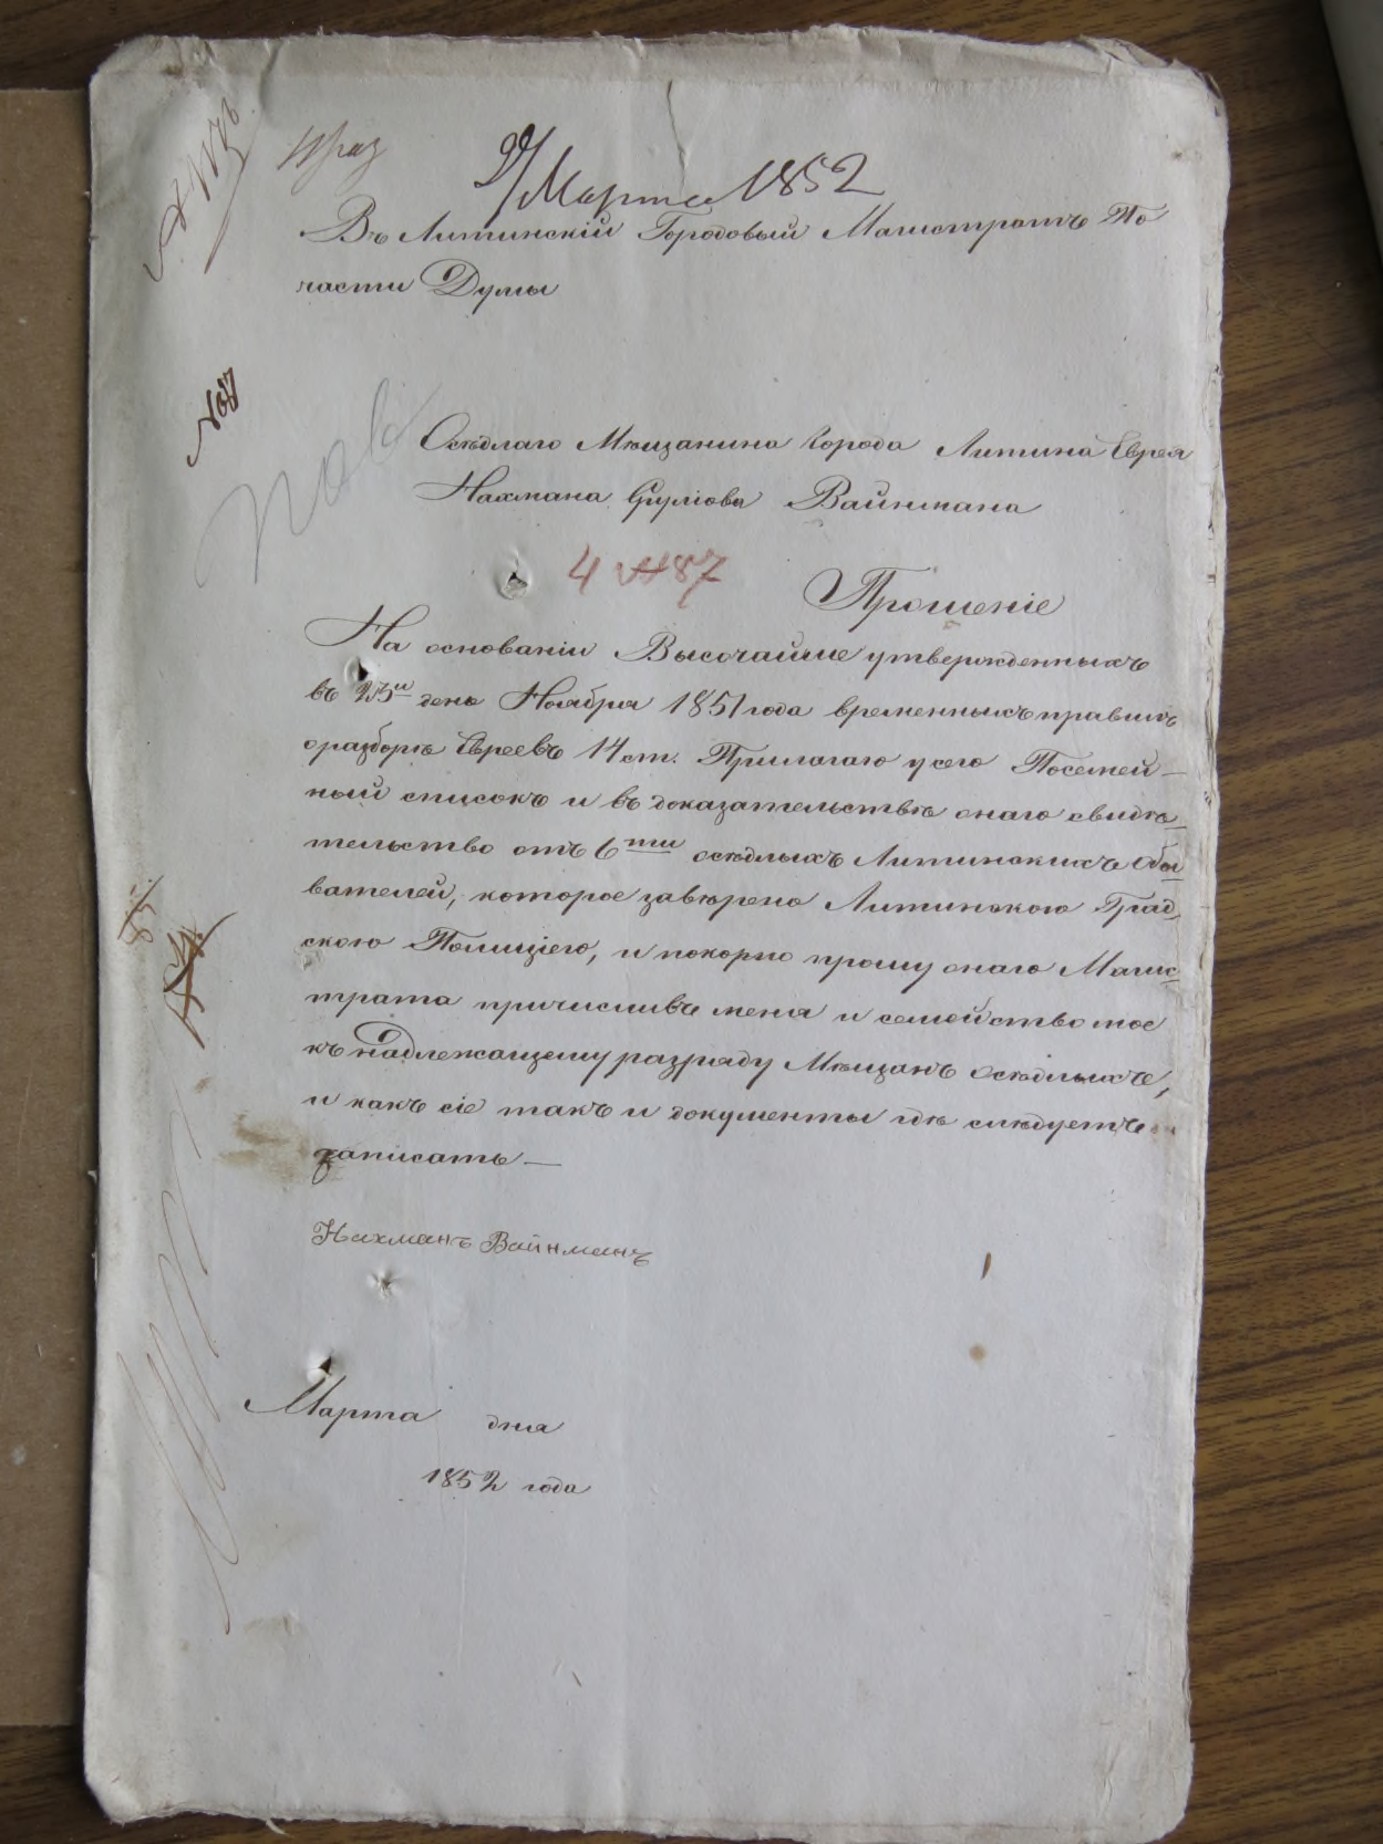 27 Марта 1852
Въ Литинскій Городовый Магистратъ По
части Думы
№ 87
Осѣдлаго Мѣщанина Города Литина Еврея
Нахмана Сруліова Вайнмана
4 № 87
Прошеніе
На основаніи Высочайше утвержденныхъ
въ 23й день Ноября 1851 года временныхъ правилъ
о разборѣ Евреевъ 14 ст. Прилагаю у сего Посемей-
ный списокъ и въ доказательствѣ онаго свидѣ-
тельство отъ 6ти осѣдлыхъ Литинскихъ Обы
вателей, которое завѣрено Литинскою Град
скою Полиціею, и покорно прошу онаго Магис
трата причисливъ меня и семейство мое
къ надлежащему разряду Мѣщанъ Осѣдлыхъ,
и какъ сіе такъ и документы гдѣ слѣдуетъ
записать —
Нахманъ Вайнманъ
Марта дня
1852 года